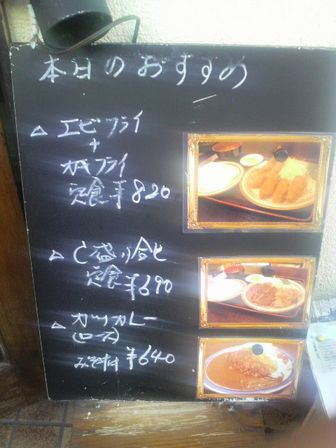 本日のおすすめ
△ エビフライ
+
カキフライ
定食 ¥820
△ C盛り合せ
定食 ¥690
△ カツカレー
(ロース)
みそ汁付 ¥640